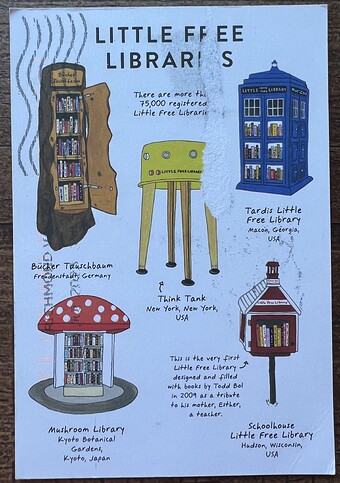 LITTLE FREE
LIBRARI S
There are more th
75,000 registered
Little Free Librari
Bücher
LITTLE FREE LIBRARY
LITTLE FREE LIBRARY
Tardis Little
Free Library
Macon, Georgia,
USA
Bücher Tauschbaum
Freudenstadt, Germany
Think Tank
New York, New York,
USA
Little Free Library
This is the very first
Little Free Library
designed and filled
with books by Todd Bol
in 2009 as a tribute
to his mother, Esther,
a teacher.
Mushroom Library
Kyoto Botanical
Gardens,
Kyoto, Japan
Schoolhouse
Little Free Library
Hudson, Wisconsin,
USA